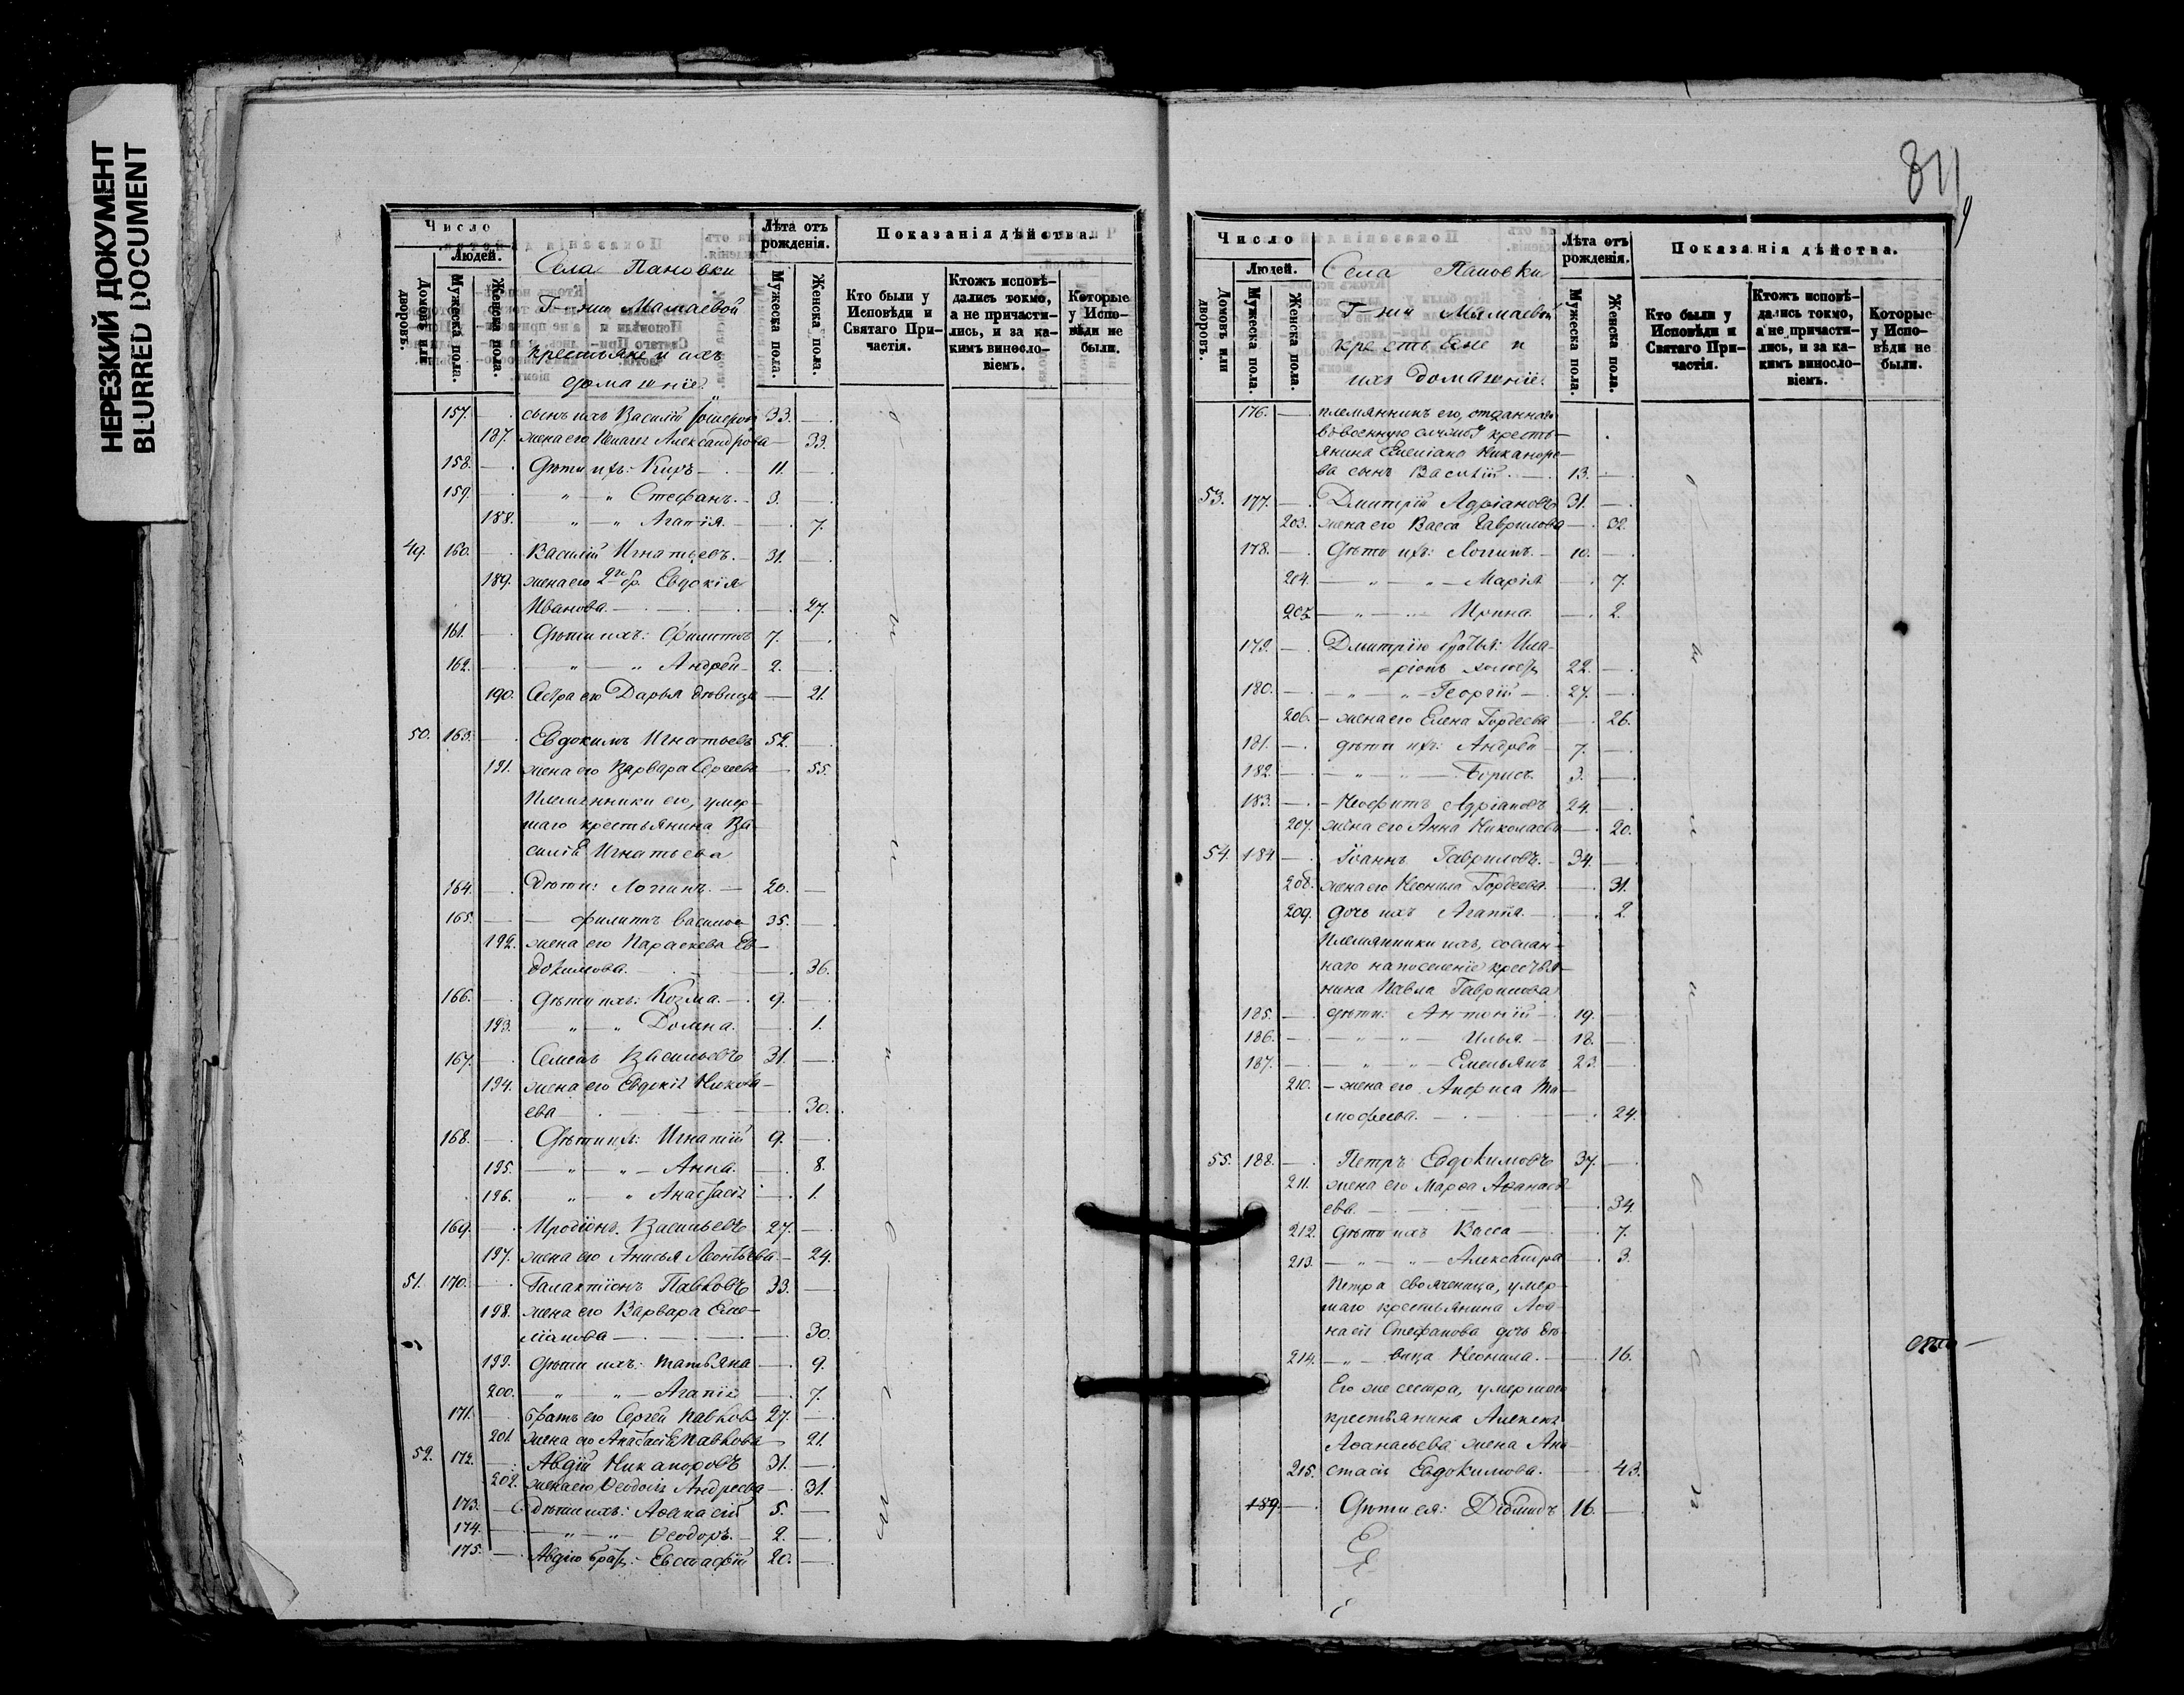 НЕРЕЗКИЙ ДОКУМЕНТ
BLURRED DOCUMENT
Число
Людей.
Домовъ или дворовъ.
Мужеска пола.
Женска пола.
Села Пановки
Г-жи Мамаевой
крестьяне и ихъ
домашніе.
Лѣта отъ рожденія.
Мужеска пола.
Женска пола.
Показанія дѣйства.
Кто были у Исповѣди и Святаго Причастія.
Ктожъ исповѣдались токмо, а не причастились, и за какимъ винословіемъ.
Которые у Исповѣди не были.
157. — сынъ ихъ Василій 33. —
187. жена его Александрова — 33.
158. — Дѣти ихъ: Киръ — 11. —
159. — " — " Стефанъ. — 3. —
188. " — " Агапія. — 7.
49. 160. — Василій Игнатьевъ. — 31. —
189. жена его 2го бр. Евдокія
Иванова. — 27.
161. — Дѣти ихъ: Филиппъ 7. —
162. — " — " Андрей — 2. —
190. Сестра его Дарья дѣвица — 21.
50. 163. — Евдокимъ Игнатьевъ 52. —
191. жена его Варвара Сергеева — 55.
Племянники его, умер-
шаго крестьянина Ва-
силія Игнатьева
164. — дѣти: Логгинъ. — 20. —
165. — — филиппъ Васильевъ 35. —
192. жена его Параскева Ев-
докимова. — 36.
166. — Дѣти ихъ: Козма. — 9.
193. " — " Домна. — 1.
167. — Семенъ Васильевъ 31. —
194. жена его Евдокія Никола-
ева — 30.
168. — Дѣти ихъ: Игнатій 9. —
195. — " — " — Анна. — 8.
196. " — " Анастасія — 1.
169. — Иродіонъ Васильевъ 27. —
197. жена его Анисья Леонтьева — 24.
51. 170. — Галактіонъ Павловъ 33. —
198. жена его Варвара Еме-
ліанова — 30.
199. Дѣти ихъ: Татьяна — 9.
200. — " — " — Агапія — 7.
171. — братъ его Сергей Павловъ 27. —
201. жена его Анастасія Павлова — 21.
52. 172. — Авдій Никаноровъ 31. —
202. жена его Ѳеодосія Андреева — 31.
173. — дѣти ихъ: Аѳанасій 5. —
174. — " — " — Ѳеодоръ. — 2. —
175. — Авдію братъ: Евстафій 20. —
811
Число
Людей.
Домовъ или дворовъ.
Мужеска пола.
Женска пола.
Села Пановки
Г-жи Мамаевой
крестьяне и
ихъ домашніе.
Лѣта отъ рожденія.
Мужеска пола.
Женска пола.
Показанія дѣйства.
Кто были у Исповѣди и Святаго Причастія.
Ктожъ исповѣдались токмо, а не причастились, и за какимъ винословіемъ.
Которые у Исповѣди не были.
176. — племянникъ его, отданнаго
въ военную службу кресть-
янина Емеліана Никаноро-
ва сынъ Василій. — 13. —
53. 177. — Дмитрій Адріановъ 31. —
203. жена его Васса Гаврилова — 32.
178. — Дѣти ихъ: Логгинъ. — 10. —
204. — " — " — Марія — 7.
205. — " — Ирина — 2.
179. — Дмитрію братья: Ила-
ріонъ холостъ 22. —
180. — " — " — Георгій — 27. —
206. — жена его Елена Гордеева — 26.
181. — дѣти ихъ: Андрей — 7. —
182. — " — " — Борисъ. 3. —
183. — Неофитъ Адріановъ 24. —
207. жена его Анна Николаева — 20.
54. 184. — Іоаннъ Гавриловъ. — 34. —
208. жена его Неонила Гордеева. — 31.
209. дочь ихъ Агапія. — 2.
Племянники ихъ, сослан-
наго на поселеніе крестья-
нина Павла Гаврилова
185. — дѣти: Антоній — 19. —
186. — " — " — Илья — 18. —
187. — " — " — Емельянъ 23. —
210. — жена его Анфиса Ти-
мофеева. — 24.
55. 188. — Петръ Евдокимовъ 37. —
211. жена его Марѳа Аѳанась-
ева. — 34.
212. Дѣти ихъ Васса — 7.
213. — " — " — Александра — 3.
Петра свояченица, умер-
шаго крестьянина Аѳа-
насія Стефанова дочь дѣ-
214. — " — вица Неонила. — 16.
Его же сестра, умершаго
крестьянина Алексея
Аѳанасьева жена Ана-
215. стасія Евдокимова. — 43.
189. — Дѣти ея: Діомидъ 16. —